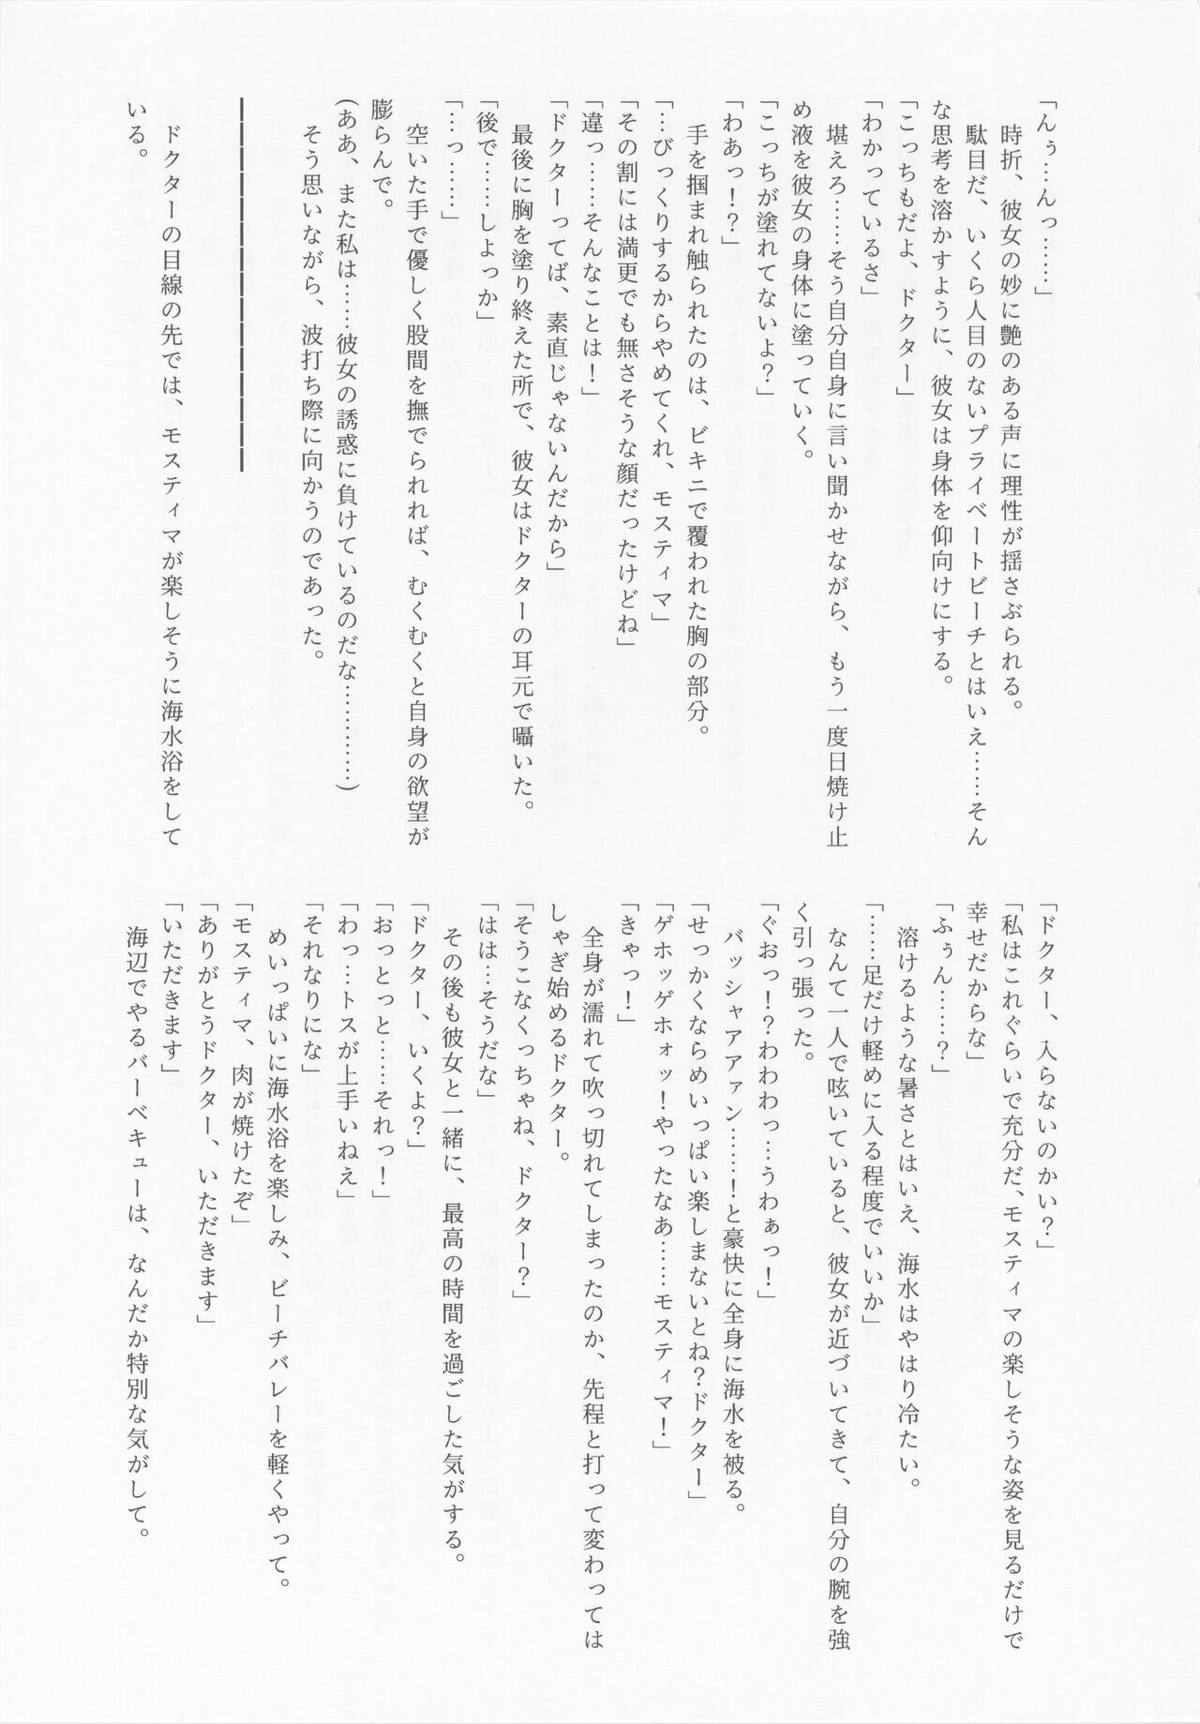 「んぅ…んっ……」
　時折、彼女の妙に艶のある声に理性が揺さぶられる。
　駄目だ、いくら人目のないプライベートビーチとはいえ……そん
な思考を溶かすように、彼女は身体を仰向けにする。
「こっちもだよ、ドクター」
「わかっているさ」
　堪えろ……そう自分自身に言い聞かせながら、もう一度日焼け止
め液を彼女の身体に塗っていく。
「こっちが塗れてないよ？」
「わあっ！？」
　手を掴まれ触られたのは、ビキニで覆われた胸の部分。
「…びっくりするからやめてくれ、モスティマ」
「その割には満更でも無さそうな顔だったけどね」
「違っ……そんなことは！」
「ドクターってば、素直じゃないんだから」
　最後に胸を塗り終えた所で、彼女はドクターの耳元で囁いた。
「後で……しよっか」
「…っ……」
　空いた手で優しく股間を撫でられれば、むくむくと自身の欲望が
膨らんで。
(ああ、また私は……彼女の誘惑に負けているのだな…………)
　そう思いながら、波打ち際に向かうのであった。
　ドクターの目線の先では、モスティマが楽しそうに海水浴をして
いる。
「ドクター、入らないのかい？」
「私はこれぐらいで充分だ、モスティマの楽しそうな姿を見るだけで
幸せだからな」
「ふぅん……？」
　溶けるような暑さとはいえ、海水はやはり冷たい。
「……足だけ軽めに入る程度でいいか」
　なんて一人で呟いていると、彼女が近づいてきて、自分の腕を強
く引っ張った。
「ぐおっ！？わわわっ…うわぁっ！」
　バッシャアアァン……！と豪快に全身に海水を被る。
「せっかくならめいっぱい楽しまないとね？ドクター」
「ゲホッゲホォッ！やったなあ……モスティマ！」
「きゃっ！」
　全身が濡れて吹っ切れてしまったのか、先程と打って変わっては
しゃぎ始めるドクター。
「そうこなくっちゃね、ドクター？」
「はは…そうだな」
　その後も彼女と一緒に、最高の時間を過ごした気がする。
「ドクター、いくよ？」
「おっとっと……それっ！」
「わっ…トスが上手いねえ」
「それなりにな」
　めいっぱいに海水浴を楽しみ、ビーチバレーを軽くやって。
「モスティマ、肉が焼けたぞ」
「ありがとうドクター、いただきます」
「いただきます」
　海辺でやるバーベキューは、なんだか特別な気がして。